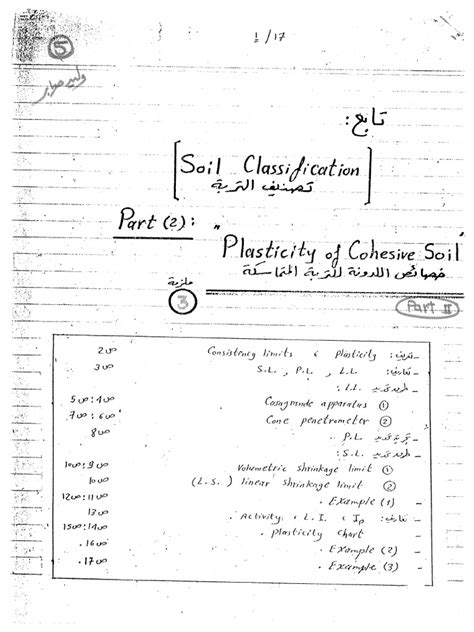 1/17
5
وليد صابر
تابع:
[Soil Classification
تصنيف التربة]
Part (2): "
Plasticity of Cohesive Soil
خصائص اللدونة للتربة المتماسكة
ملزمة
3
Part II
- تعريف: Consistency limits , Plasticity ص 2
- تعاريف: S.L. , P.L. , L.L. ص 3
- طريقة تحديد L.L. :
① Casagrande apparatus ص 4 : ص 5
② Cone penetrometer ص 6 : ص 7
- تجربة تحديد P.L. ص 8
- طريقة تحديد S.L. :
① Volumetric shrinkage limit ص 9 : ص 10
② linear shrinkage limit (L.S.) ص 10
- Example (1). ص 11 : ص 12
- تعاريف: Ip , L.I. , Activity. ص 13
- plasticity chart. ص 14 : ص 15
- Example (2). ص 16.
- Example (3). ص 17.